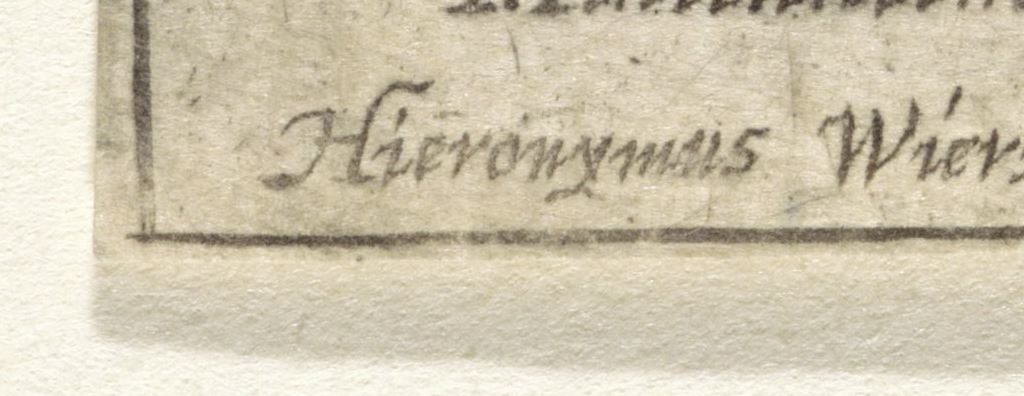 Hieronymus Wiers